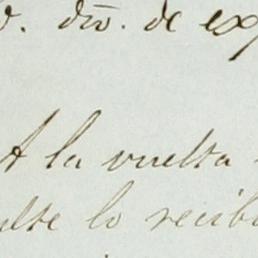 div. de ex
A la vuelta
ulte lo recib